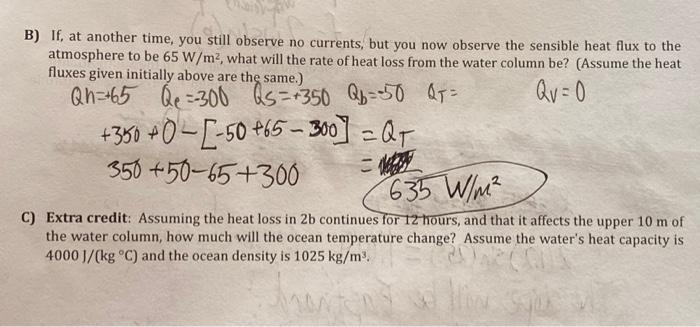 B) If, at another time, you still observe no currents, but you now observe the sensible heat flux to the
atmosphere to be 65 W/m², what will the rate of heat loss from the water column be? (Assume the heat
fluxes given initially above are the same.)
Qh=+65 Qe=-300 Qs=+350 Qb=-50 QT= Qv=0
+350+0-[-50+65-300] = QT
350+50-65+300 =
635 W/m²
C) Extra credit: Assuming the heat loss in 2b continues for 12 hours, and that it affects the upper 10 m of
the water column, how much will the ocean temperature change? Assume the water's heat capacity is
4000 J/(kg °C) and the ocean density is 1025 kg/m³.